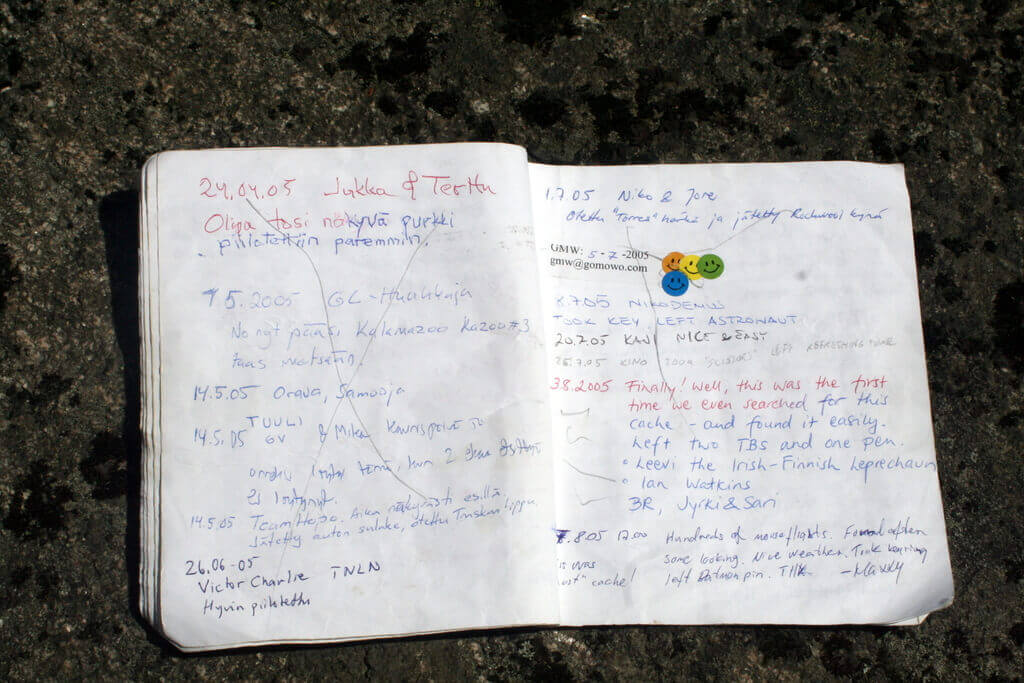 24.04.05 Jukka & Terttu
Olipa tosi näkyvä purkki
piilotettiin paremmin.
1.5.2005 GC-Huuhkaja
No nyt pääsi Kalamazoo Kazoo #3
taas metsään.
14.5.05 Orava, Samooja
14.5.05 TUULI & Mika Kaunis päivä
GV
14.5.05 Team Hepo. Aika näkyvästi esillä.
Jätetty auton sulake, otettu Tanskan lippu.
26.06-05
Victor Charlie TNLN
Hyvin piilotettu
1.7.05 Niko & Jore
Otettu "Torres" ja jätetty Rockwool kynä
GMW: 5-7-2005
gmw@gomowo.com
8.7.05 NIKODEMUS
TOOK KEY LEFT ASTRONAUT
20.7.05 KAJ NICE & EASY
25.7.05 KINO TOOK "SCISSORS" LEFT REFRESHING
3.8.2005 Finally! Well, this was the first
time we even searched for this
cache - and found it easily.
Left two TBs and one pen.
• Leevi the Irish-Finnish Leprechaun
• Ian Watkins
BR, Jyrki & Sari
7.8.05 12.00 Hundreds of mouseflights. Found after
some looking. Nice weather. Took keyring
left Batman pin. -Maxxy
is was
cache!